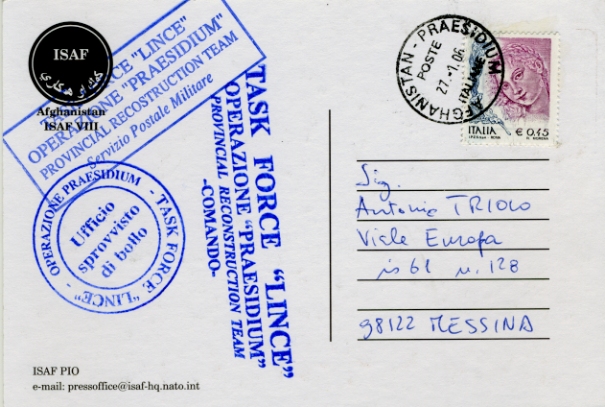 ISAF
Afghanistan
ISAF VIII
TASK FORCE "LINCE"
OPERAZIONE "PRAESIDIUM"
PROVINCIAL RECOSTRUCTION TEAM
Servizio Postale Militare
- OPERAZIONE PRAESIDIUM - TASK FORCE "LINCE"
Ufficio
sprovvisto
di bollo
TASK FORCE "LINCE"
OPERAZIONE "PRAESIDIUM"
PROVINCIAL RECONSTRUCTION TEAM
-COMANDO-
AFGHANISTAN - PRAESIDIUM
POSTE ITALIANE
27.-1.06
ITALIA
€ 0,45
Sig.
Antonio TRIOLO
Viale Europa
is 61 n. 128
98122 MESSINA
ISAF PIO
e-mail: pressoffice@isaf-hq.nato.int